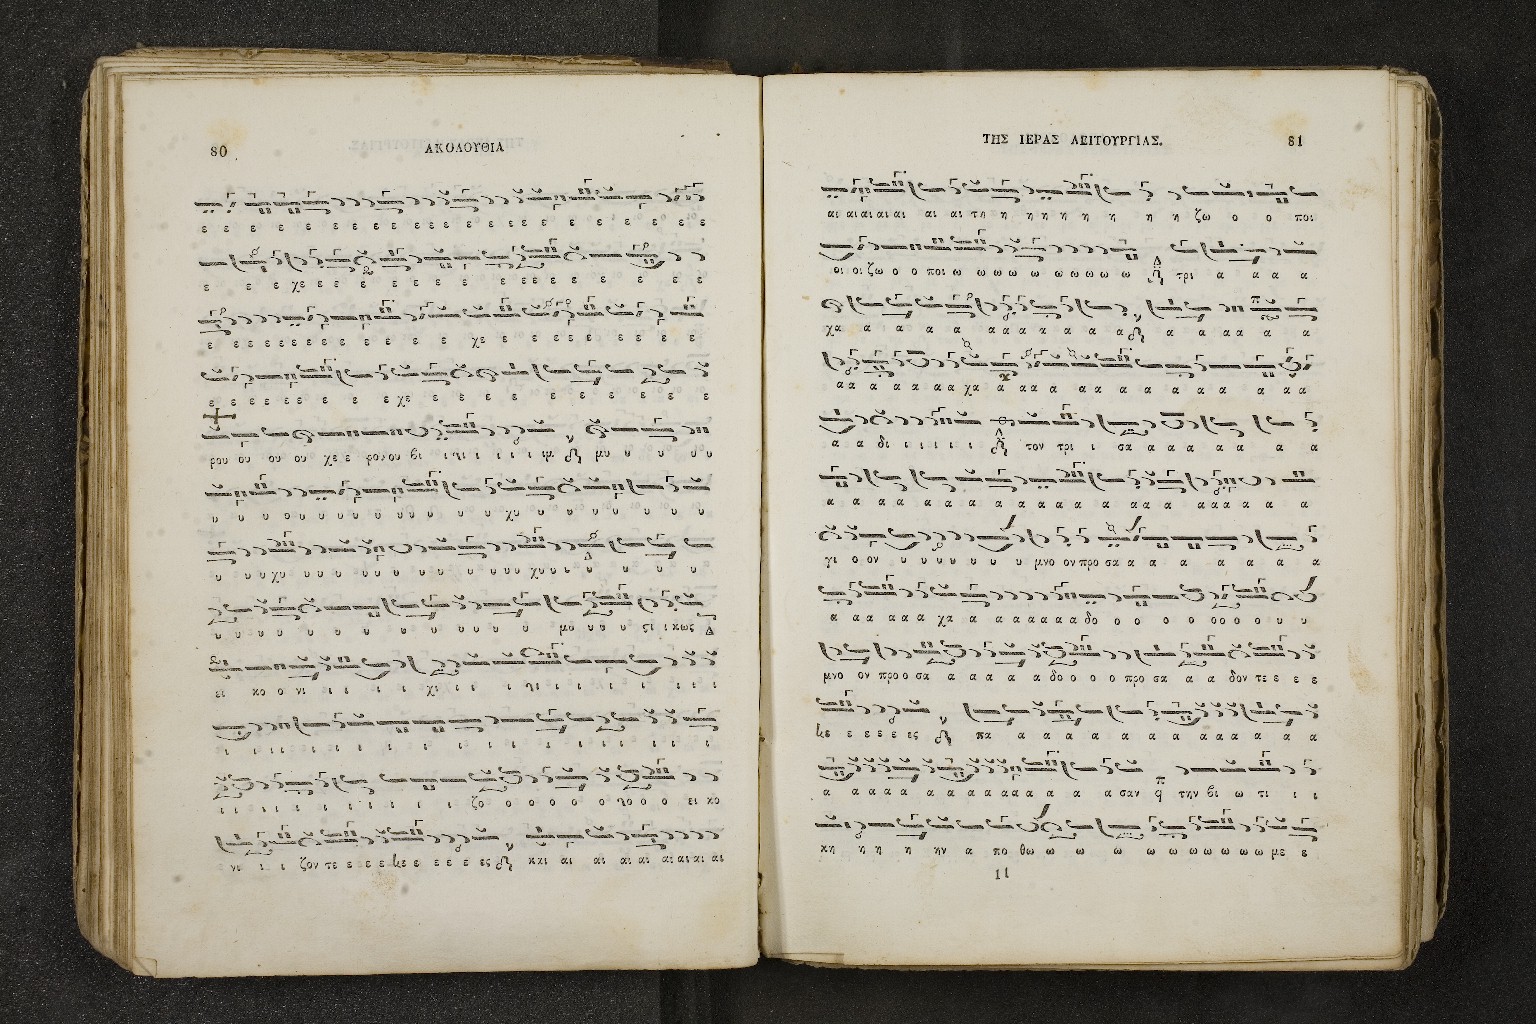 80 ΑΚΟΛΟΥΘΙΑ
ε ε ε ε ε ε ε ε ε ε ε ε ε ε ε ε ε ε ε ε ε ε
ε ε ε χε ε ε ε ε ε ε ε ε ε ε ε ε ε
ε ε ε ε ε ε ε ε ε ε ε ε χε ε ε ε ε ε ε ε ε
ε ε ε ε ε ε ε ε ε χε ε ε ε ε ε ε ε ε
ρου ου ου ου χε ε ρου ου βι ι ι ι ι ι ιμ μυ υ υ υ υ
υ υ υ υ υ υ υ υ υ υ υ υ υ χυ υ υ υ υ υ υ υ
υ υ υ χυ υ υ υ υ υ υ υ υ υ υ υ χυ υ υ υ υ υ υ υ
υ υ υ υ υ υ υ υ υ υ υ υ υ μο υ υ υ ςι ι κως
ει κο ο νι ι ι ι ι χι ι ι ι ι ι ι ι ι ι ι ι
ι ι ι ι ι ι ι ι ι ι ι ι ι ι ι ι ι
ι ι ι ι ι ι ι ι ι ι ζο ο ο ο ο ο ο ο ο ει κο
νι ι ι ζον τε ε ε ε κε ε ε ε ε ες και αι αι αι αι αι αι αι αι
ΤΗΣ ΙΕΡΑΣ ΛΕΙΤΟΥΡΓΙΑΣ. 81
αι αι αι αι αι αι αι τη η η η η η η η η ζω ο ο ποι
οι οι ζω ο ο ποι ω ω ω ω ω ω ω ω ω τρι α α α α
χα α α α α α α α α α α α α α α α α α
α α α α α α α χα α α α α α α α α α α α α α
α α δι ι ι ι ι ι τον τρι ι σα α α α α α α α
α α α α α α α α α α α α α α α α α α α α α α α
γι ο ον υ υ υ υ υ υ υ μνο ον προ σα α α α α α α α
α α α α α α χα α α α α α α α δο ο ο ο ο ο ο ο ο υ υ
μνο ον προ ο σα α α α α α δο ο ο ο προ σα α α δον τε ε ε ε
κε ε ε ε ε εις πα α α α α α α α α α α α α α
α α α α α α α α α α α α α α α σαν την βι ω τι ι ι
κη η η η ην α πο θω ω ω ω ω ω ω ω ω ω ω με ε
11